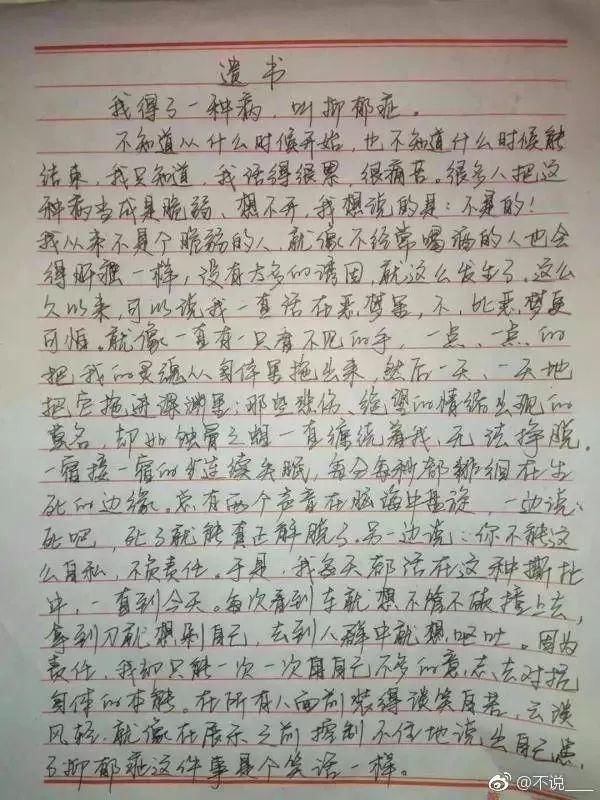 遗书
我得了一种病，叫抑郁症。
不知道从什么时候开始，也不知道什么时候能
结束，我只知道，我活得很累，很痛苦。很多人把这
种病当成是脆弱、想不开，我想说的是：不是的！
我从来不是个脆弱的人，就像不经常喝酒的人也会
得肝癌一样，没有太多的诱因，就这么发生了，这么
久以来，可以说我一直活在恶梦里，不，比恶梦更
可怕。就像一直有一只看不见的手，一点、一点的
把我的灵魂从身体里拖出来，然后一天、一天地
把它拖进深渊里；那些悲伤、绝望的情绪出现的
莫名，却如蚀骨之蛆一直缠绕着我，无法挣脱。
一宿接一宿的连续失眠，每分每秒都徘徊在生
死的边缘。总有两个声音在脑海中盘旋，一边说：
死吧，死了就能真正解脱了。另一边说：你不能这
么自私，不负责任。于是，我每天都活在这种撕扯
中，一直到今天。每次看到车就想不管不顾撞上去，
拿到刀就想剁自己，去到人群中就想呕吐。因为
责任，我却只能一次一次用自己不多的意志，去对抗
身体的本能。在所有人面前装得谈笑自若、云淡
风轻，就像在展示之前控制不住地说出自己患
了抑郁症这件事是个笑话一样。
@不说___